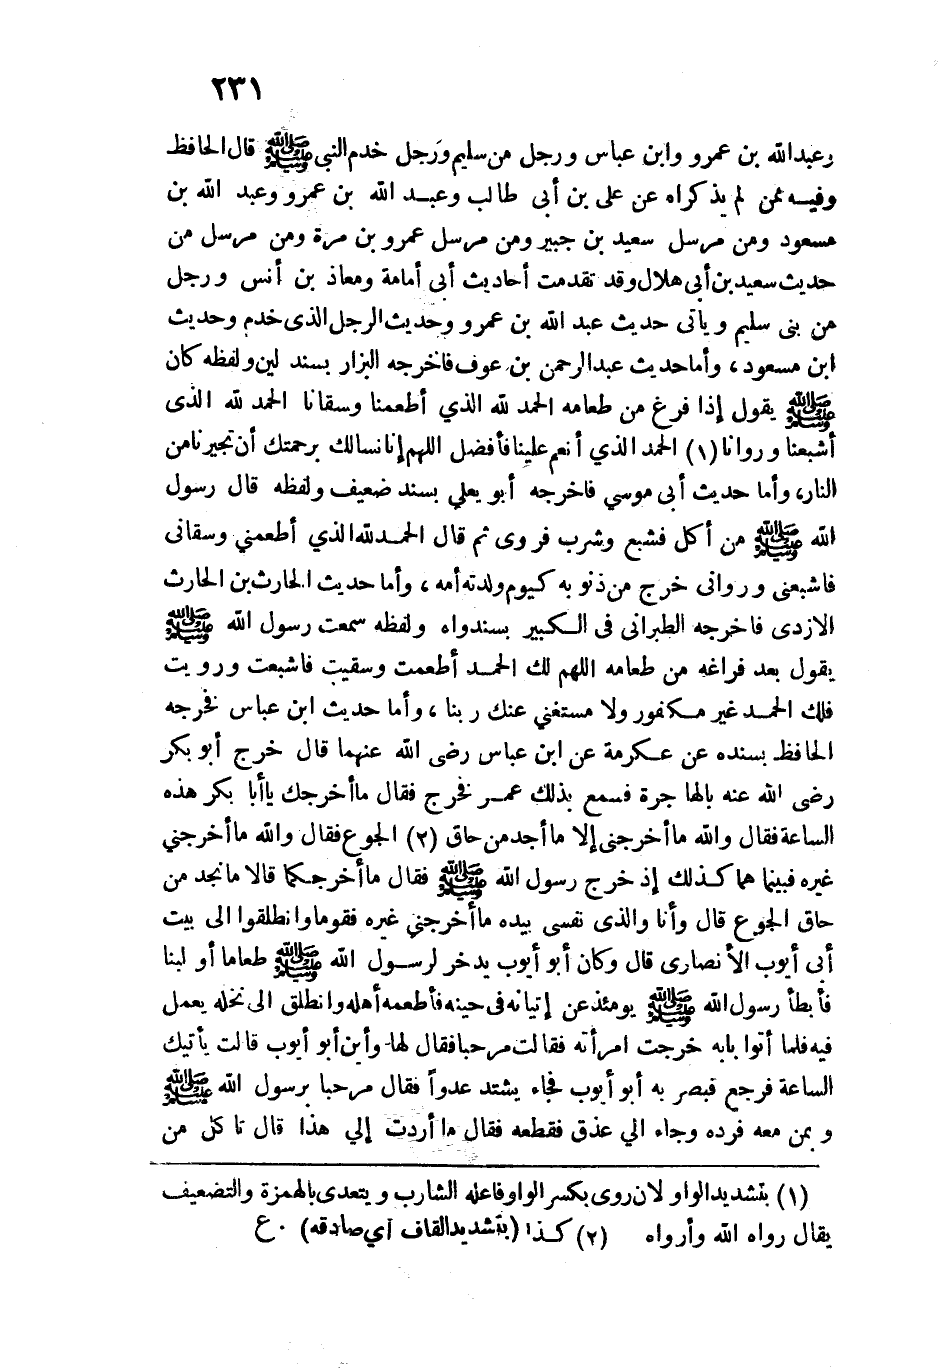 ٢٣١
وعبدالله بن عمرو وابن عباس ورجل من سليم ورجل خدم النبي ﷺ قال الحافظ
وفيه ممن لم يذكراه عن على بن أبى طالب وعبد الله بن عمرو وعبد الله بن
مسعود ومن مرسل سعيد بن جبير ومن مرسل عمرو بن مرة ومن مرسل من
حديث سعيد بن أبى هلال وقد تقدمت أحاديث أبى أمامة ومعاذ بن أنس ورجل
من بنى سليم ويأتى حديث عبد الله بن عمرو وحديث الرجل الذى خدم وحديث
ابن مسعود، وأما حديث عبدالرحمن بن عوف فاخرجه البزار بسند لين ولفظه كان
ﷺ يقول إذا فرغ من طعامه الحمد لله الذي أطعمنا وسقانا الحمد لله الذى
أشبعنا وروانا (١) الحمد الذي أنعم علينا فأفضل اللهم إنا نسالك برحمتك أن تجيرنا من
النار، وأما حديث أبى موسي فاخرجه أبو يعلي بسند ضعيف ولفظه قال رسول
الله ﷺ من أكل فشبع وشرب فروى ثم قال الحمد لله الذي أطعمني وسقانى
فاشبعنى وروانى خرج من ذنوبه كيوم ولدته أمه، وأما حديث الحارث بن الحارث
الازدى فاخرجه الطبرانى فى الكبير بسند واه ولفظه سمعت رسول الله ﷺ
يقول بعد فراغه من طعامه اللهم لك الحمد أطعمت وسقيت فاشبعت ورويت
فلك الحمد غير مكفور ولا مستغني عنك ربنا، وأما حديث ابن عباس فخرجه
الحافظ بسنده عن عكرمة عن ابن عباس رضى الله عنهما قال خرج أبو بكر
رضى الله عنه بالهاجرة فسمع بذلك عمر فخرج فقال ما أخرجك يا أبا بكر هذه
الساعة فقال والله ما أخرجنى إلا ما أجد من حاق (٢) الجوع فقال والله ما أخرجني
غيره فبينما هما كذلك إذ خرج رسول الله ﷺ فقال ما أخرجكما قالا ما نجد من
حاق الجوع قال وأنا والذى نفسى بيده ما أخرجني غيره فقوما وانطلقوا الى بيت
أبى أيوب الأنصارى قال وكان أبو أيوب يدخر لرسول الله ﷺ طعاما أو لبنا
فأبطأ رسول الله ﷺ يومئذ عن إتيانه فى حينه فأطعمه أهله وانطلق الى نخله يعمل
فيه فلما أتوا بابه خرجت امرأته فقالت مرحبا فقال لها وأين أبو أيوب قالت يأتيك
الساعة فرجع فبصر به أبو أيوب فجاء يشتد عدواً فقال مرحبا برسول الله ﷺ
وبمن معه فرده وجاء الي عذق فقطعه فقال ما أردت إلي هذا قال تاكل من
(١) بتشديد الواو لان روى بكسر الواو فاعله الشارب ويتعدى بالهمزة والتضعيف
يقال رواه الله وأرواه (٢) كذا (بتشديد القاف أي صادقه) . ع